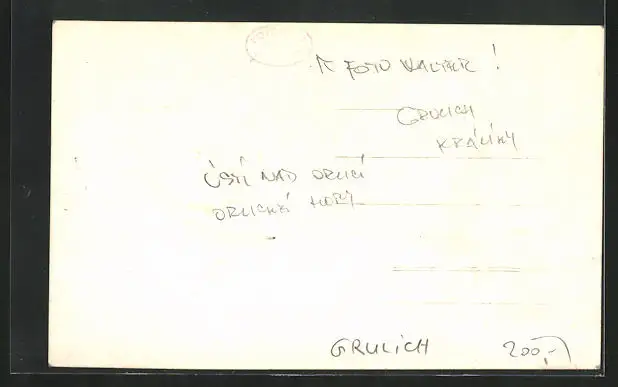 FOTO WALTER!
GRULICH
KRÁLÍKY
ÚSTÍ NAD ORLICÍ
ORLICKÉ HORY
GRULICH 200,-